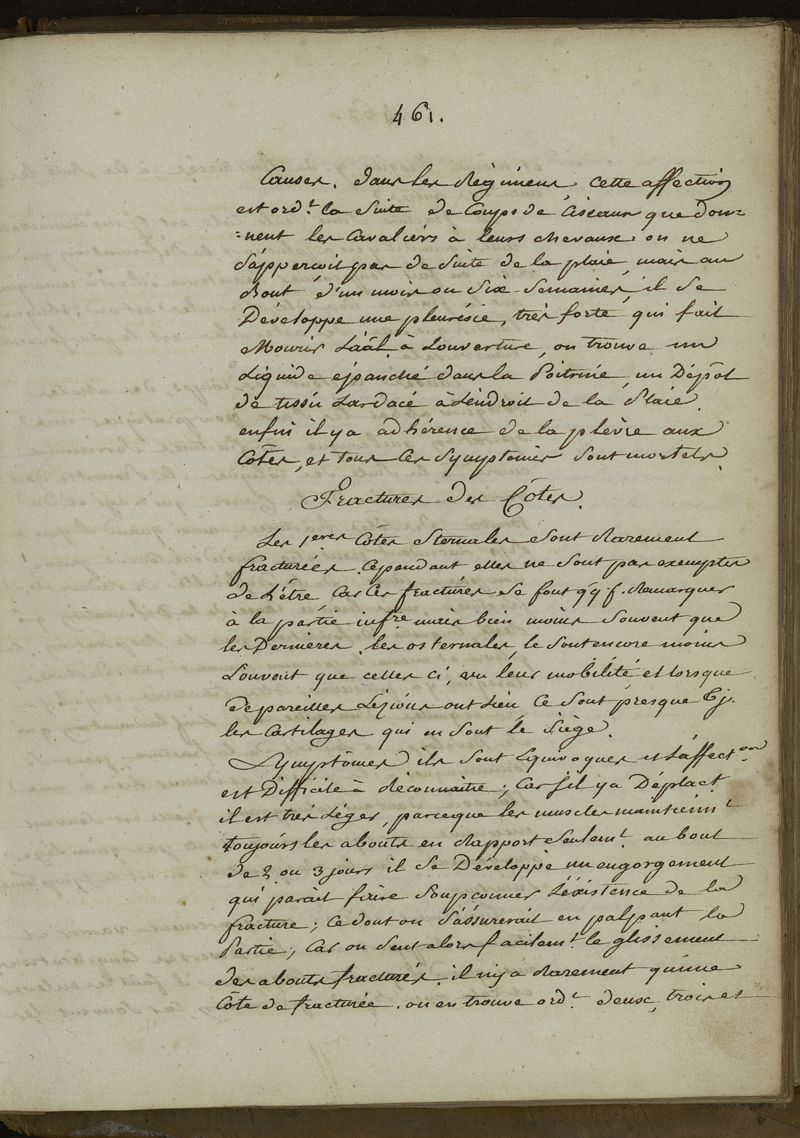 461.
Causes. dans les Régimens, cette affection
est ord.t la Suite de Coups de Ciseaux que don=
=nent les Cavaliers à leurs chevaux on ne
S'apperçoit pas de Suite de la plaie, mais au
Bout d'un mois ou Six Semaines, il Se
Développe une pleurésie, très forte, qui fait
Mourir L'aal. à Louverture, on trouve un
Liquide épanché dans la Poitrine, un Dépôt
de tissu Lardacé à Lendroit de la Plaie.
enfin il y a adhérence de la plèvre aux
Côtes, et tous Ces Symptomes Sont mortels.
Fractures des Côtes.
Les 1eres Côtes Sternales Sont Rarement
fracturées. Cependant elles ne Sont pas exemptes
de L'être Car Ces fractures Se font q'q f. Remarquer
à la partie infre mais bien moins Souvent que
les Dernieres. les asternales, le Sont encore moins
Souvent que celles ci, vu leur mobilité et lorsque
de pareilles Lésions ont Lieu Ce Sont presque Tj.
les Cartilages qui en Sont le Siège.
Symptômes ils Sont Equivoques et L'affect.on
est Difficile à Réconnaitre; Car S'il y a Déplact
il est très Léger, parceque les muscles maintienn.t
toujours les abouts en Rapport Seulem.t au bout
de 2 ou 3 jours il Se Développe un engorgement
qui parait faire Soupconner L'éxistence de la
fracture; Ce dont on S'assurerait en palpant la
Partie; Car on Sent alors facilem.t le glissement
des abouts fracturés. il n'y a Rarement qu'une
Côte de fracturée. on en trouve ord.t deux, trois et